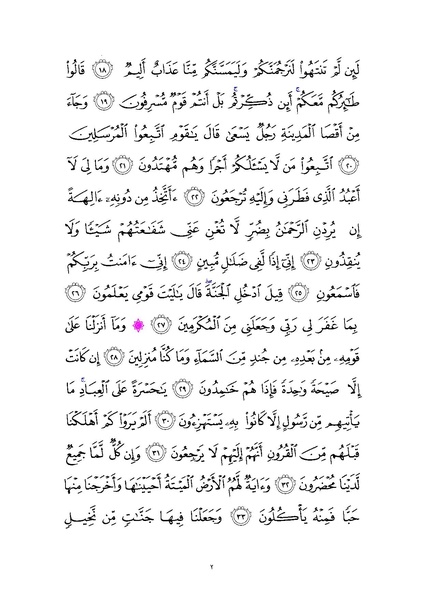 لَئِن لَّمْ تَنتَهُوا۟ لَنَرْجُمَنَّكُمْ وَلَيَمَسَّنَّكُم مِّنَّا عَذَابٌ أَلِيمٌ ١٨ قَالُوا۟
طَـٰٓئِرُكُم مَّعَكُمْ ۚ أَئِن ذُكِّرْتُم ۚ بَلْ أَنتُمْ قَوْمٌ مُّسْرِفُونَ ١٩ وَجَآءَ
مِنْ أَقْصَا ٱلْمَدِينَةِ رَجُلٌ يَسْعَىٰ قَالَ يَـٰقَوْمِ ٱتَّبِعُوا۟ ٱلْمُرْسَلِينَ
٢٠ ٱتَّبِعُوا۟ مَن لَّا يَسْـَٔلُكُمْ أَجْرًا وَهُم مُّهْتَدُونَ ٢١ وَمَا لِىَ لَآ
أَعْبُدُ ٱلَّذِى فَطَرَنِى وَإِلَيْهِ تُرْجَعُونَ ٢٢ ءَأَتَّخِذُ مِن دُونِهِۦٓ ءَالِهَةً
إِن يُرِدْنِ ٱلرَّحْمَـٰنُ بِضُرٍّ لَّا تُغْنِ عَنِّى شَفَـٰعَتُهُمْ شَيْـًٔا وَلَا
يُنقِذُونِ ٢٣ إِنِّىٓ إِذًا لَّفِى ضَلَـٰلٍ مُّبِينٍ ٢٤ إِنِّىٓ ءَامَنتُ بِرَبِّكُمْ
فَٱسْمَعُونِ ٢٥ قِيلَ ٱدْخُلِ ٱلْجَنَّةَ ۖ قَالَ يَـٰلَيْتَ قَوْمِى يَعْلَمُونَ ٢٦
بِمَا غَفَرَ لِى رَبِّى وَجَعَلَنِى مِنَ ٱلْمُكْرَمِينَ ٢٧ وَمَآ أَنزَلْنَا عَلَىٰ
قَوْمِهِۦ مِنۢ بَعْدِهِۦ مِن جُندٍ مِّنَ ٱلسَّمَآءِ وَمَا كُنَّا مُنزِلِينَ ٢٨ إِن كَانَتْ
إِلَّا صَيْحَةً وَٰحِدَةً فَإِذَا هُمْ خَـٰمِدُونَ ٢٩ يَـٰحَسْرَةً عَلَى ٱلْعِبَادِ ۚ مَا
يَأْتِيهِم مِّن رَّسُولٍ إِلَّا كَانُوا۟ بِهِۦ يَسْتَهْزِءُونَ ٣٠ أَلَمْ يَرَوْا۟ كَمْ أَهْلَكْنَا
قَبْلَهُم مِّنَ ٱلْقُرُونِ أَنَّهُمْ إِلَيْهِمْ لَا يَرْجِعُونَ ٣١ وَإِن كُلٌّ لَّمَّا جَمِيعٌ
لَّدَيْنَا مُحْضَرُونَ ٣٢ وَءَايَةٌ لَّهُمُ ٱلْأَرْضُ ٱلْمَيْتَةُ أَحْيَيْنَـٰهَا وَأَخْرَجْنَا مِنْهَا
حَبًّا فَمِنْهُ يَأْكُلُونَ ٣٣ وَجَعَلْنَا فِيهَا جَنَّـٰتٍ مِّن نَّخِيلٍ
٢